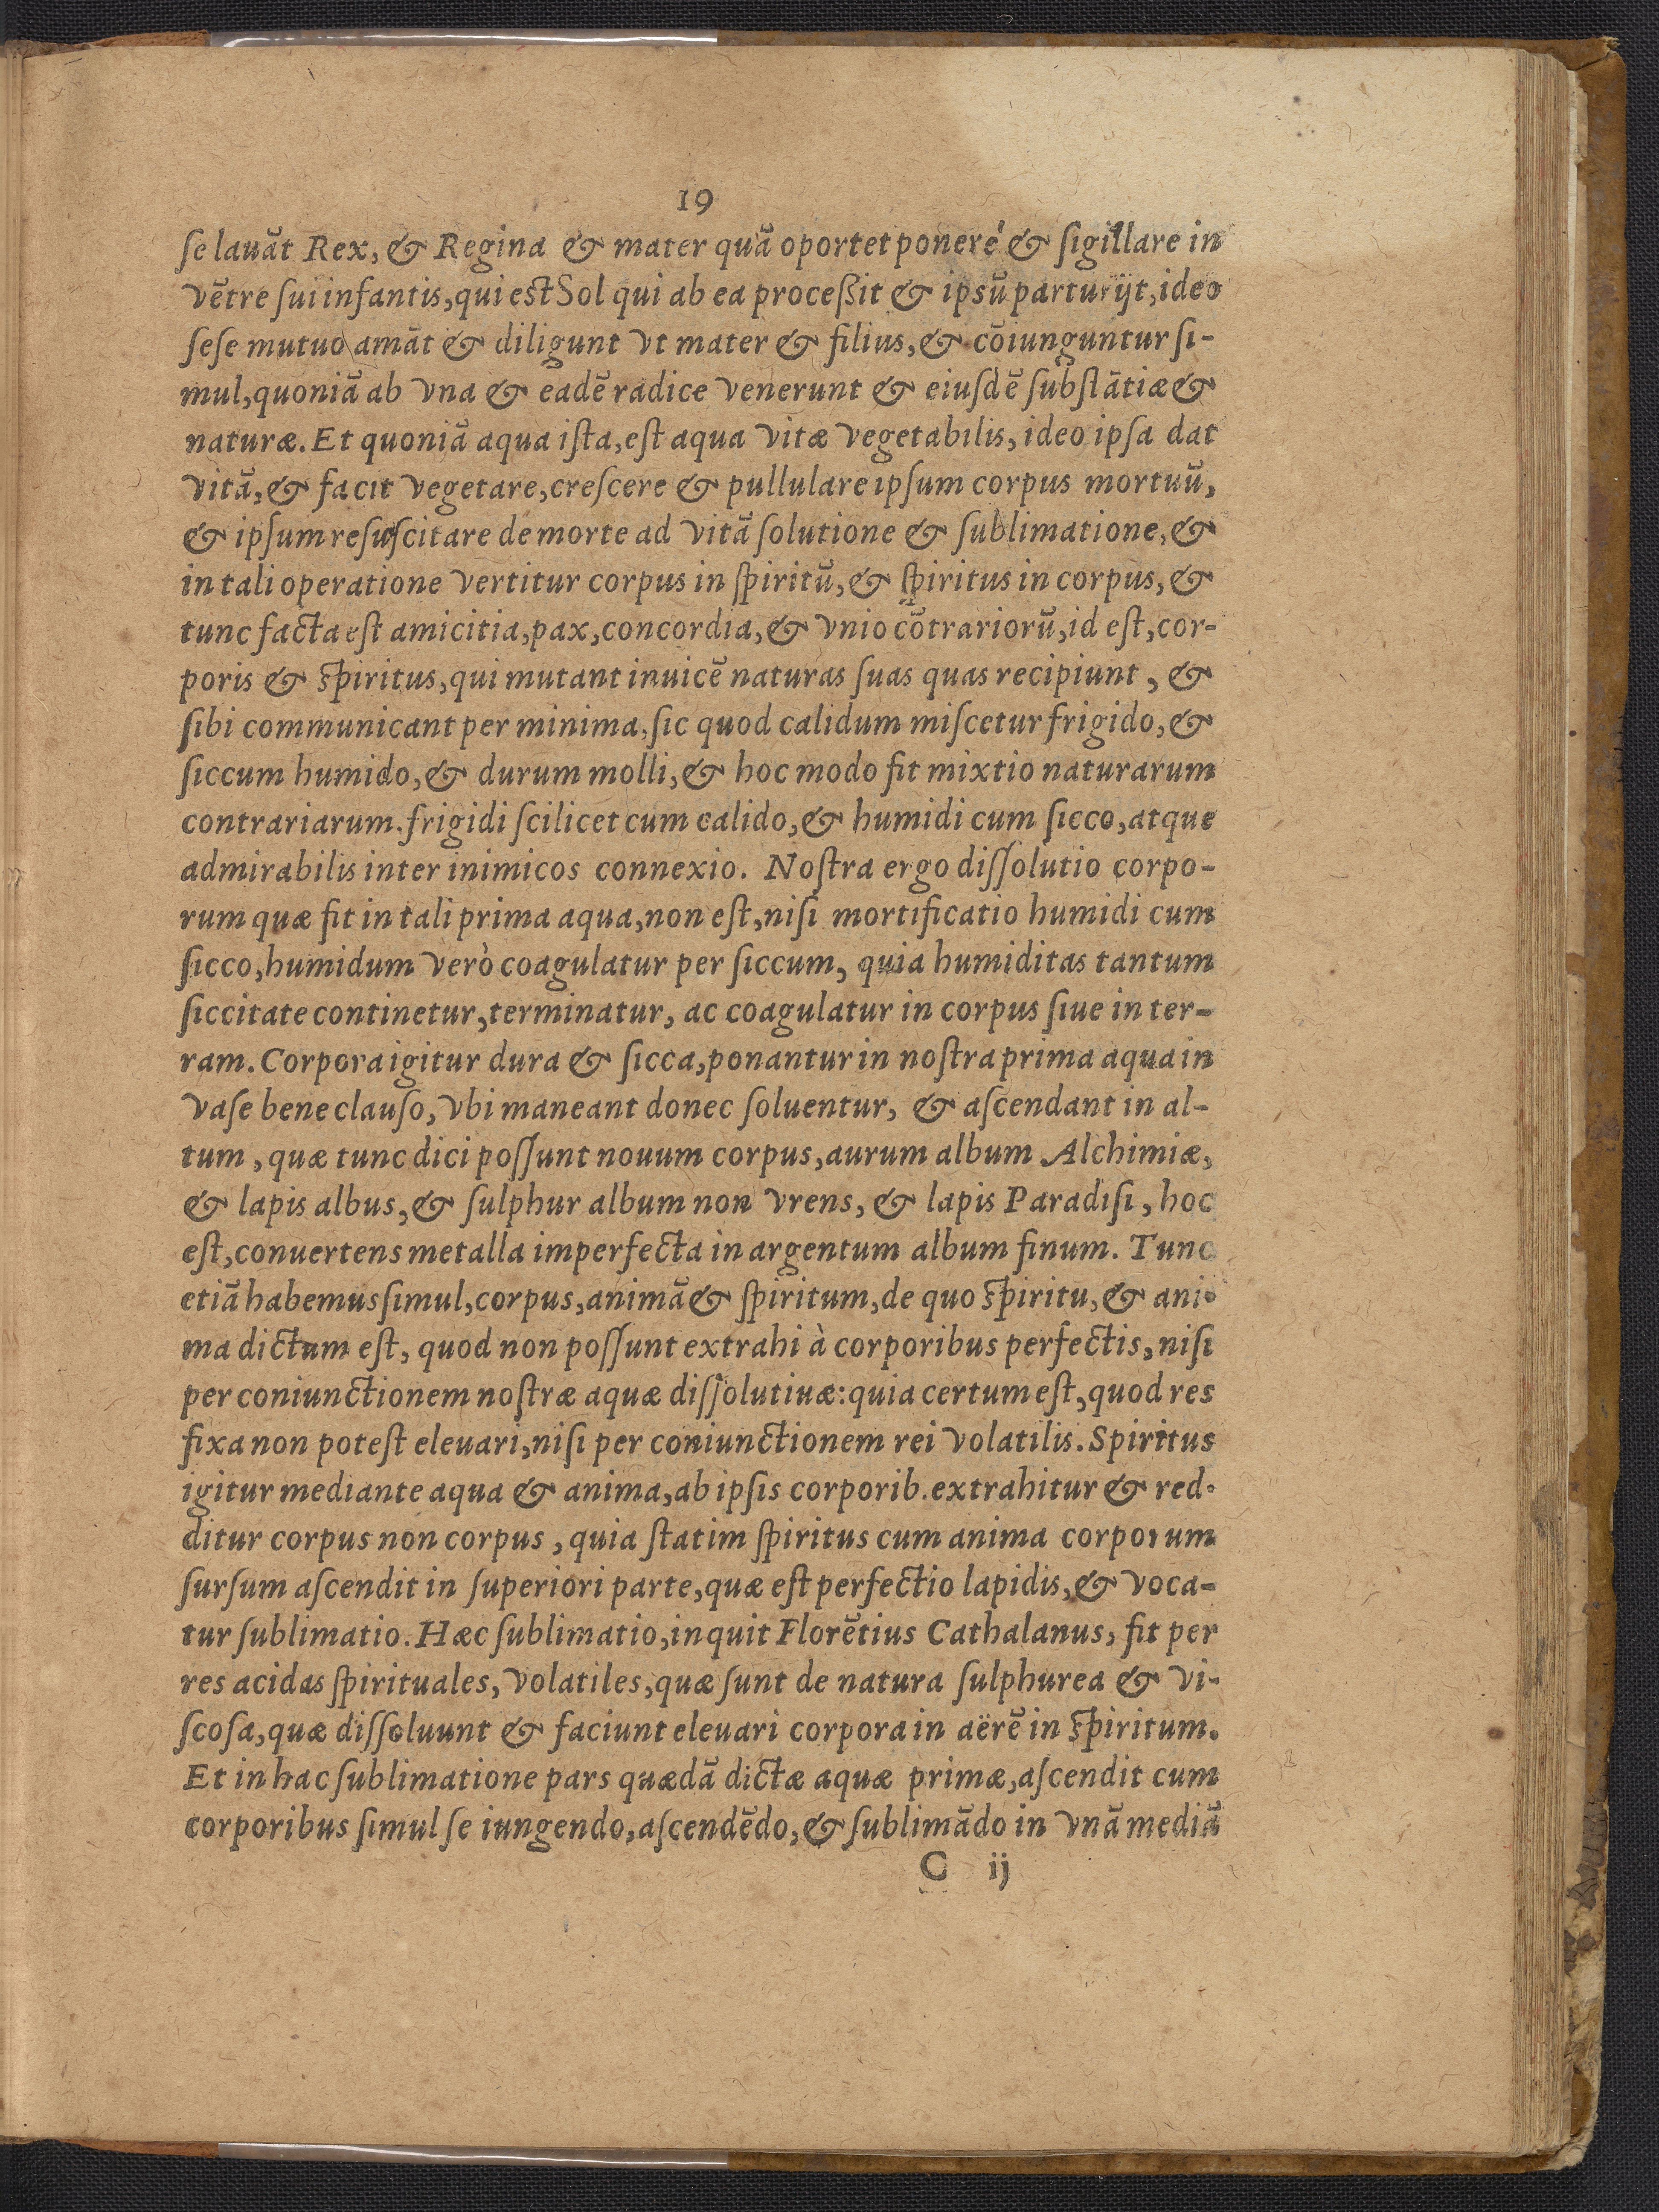 19
ſe lauāt Rex, & Regina & mater quā oportet ponere & ſigillare in
vētre ſui infantis, qui est Sol qui ab ea proceßit & ipsū parturijt, ideo
ſeſe mutuo amāt & diligunt vt mater & filius, & cōiunguntur ſi-
mul, quoniā ab vna & eadē radice venerunt & eiuſdē ſubſtātiæ &
naturæ. Et quoniā aqua iſta, eſt aqua vitæ vegetabilis, ideo ipſa dat
vitā, & facit vegetare, creſcere & pullulare ipſum corpus mortuū,
& ipſum reſuſcitare de morte ad vitā ſolutione & ſublimatione, &
in tali operatione vertitur corpus in ſpiritū, & ſpiritus in corpus, &
tunc facta eſt amicitia, pax, concordia, & vnio cōtrariorū, id eſt, cor-
poris & ſpiritus, qui mutant inuicē naturas ſuas quas recipiunt, &
ſibi communicant per minima, ſic quod calidum miſcetur frigido, &
ſiccum humido, & durum molli, & hoc modo fit mixtio naturarum
contrariarum. frigidi ſcilicet cum calido, & humidi cum ſicco, atque
admirabilis inter inimicos connexio. Noſtra ergo diſſolutio corpo-
rum quæ fit in tali prima aqua, non eſt, niſi mortificatio humidi cum
ſicco, humidum verò coagulatur per ſiccum, quia humiditas tantum
ſiccitate continetur, terminatur, ac coagulatur in corpus ſiue in ter-
ram. Corpora igitur dura & ſicca, ponantur in noſtra prima aqua in
vaſe bene clauſo, vbi maneant donec ſoluentur, & aſcendant in al-
tum, quæ tunc dici poſſunt nouum corpus, aurum album Alchimiæ,
& lapis albus, & ſulphur album non vrens, & lapis Paradiſi, hoc
eſt, conuertens metalla imperfecta in argentum album finum. Tunc
etiā habemus ſimul, corpus, animā & ſpiritum, de quo ſpiritu, & ani-
ma dictum eſt, quod non poſſunt extrahi à corporibus perfectis, niſi
per coniunctionem noſtræ aquæ diſſolutiuæ: quia certum eſt, quod res
fixa non poteſt eleuari, niſi per coniunctionem rei volatilis. Spiritus
igitur mediante aqua & anima, ab ipſis corporib. extrahitur & red-
ditur corpus non corpus, quia ſtatim ſpiritus cum anima corporum
ſurſum aſcendit in ſuperiori parte, quæ eſt perfectio lapidis, & voca-
tur ſublimatio. Hæc ſublimatio, inquit Florētius Cathalanus, fit per
res acidas ſpirituales, volatiles, quæ ſunt de natura ſulphurea & vi-
ſcoſa, quæ diſſoluunt & faciunt eleuari corpora in aërē in ſpiritum.
Et in hac ſublimatione pars quædā dictæ aquæ primæ, aſcendit cum
corporibus ſimul ſe iungendo, aſcendēdo, & ſublimādo in vnā mediā
C ij